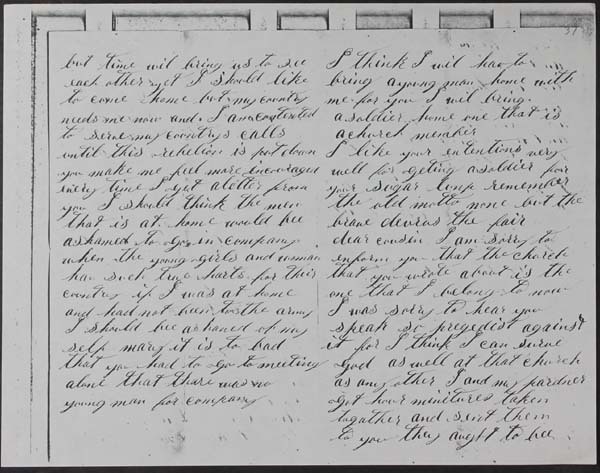 but time wil bring us to see
each other yet I should like
to come home but my country
needs me now and I am contented
to serve my countrys calls
until this rebelion is put down
you make me feel more incouraged
every time I get a letter from
you I should think the men
that is at home would bee
ashamed to go in company
when the young girls and woman
has such true harts for their
country if I was at home
and had not been to the army
I should bee ashamed of my
self mary it is to bad
that you had to go to meeting
alone that thare was no
young man for company
37
I think I wil hav to
bring a young man home with
me for you I wil bring
a soldier home one that is
a church member
I like your intentions very
well for geting a soldier for
your sugar lump remember
the old motto none but the
brave deserves the fair
dear cousin I am sorry to
enform you that the church
that you wrote about is the
one that I belong to now
I was sorry to hear you
speak so pregedist against
it for I think I can surve
god as well at that church
as any other I and my pardner
got hour minitures taken
togather and sent them
to you they aught to bee